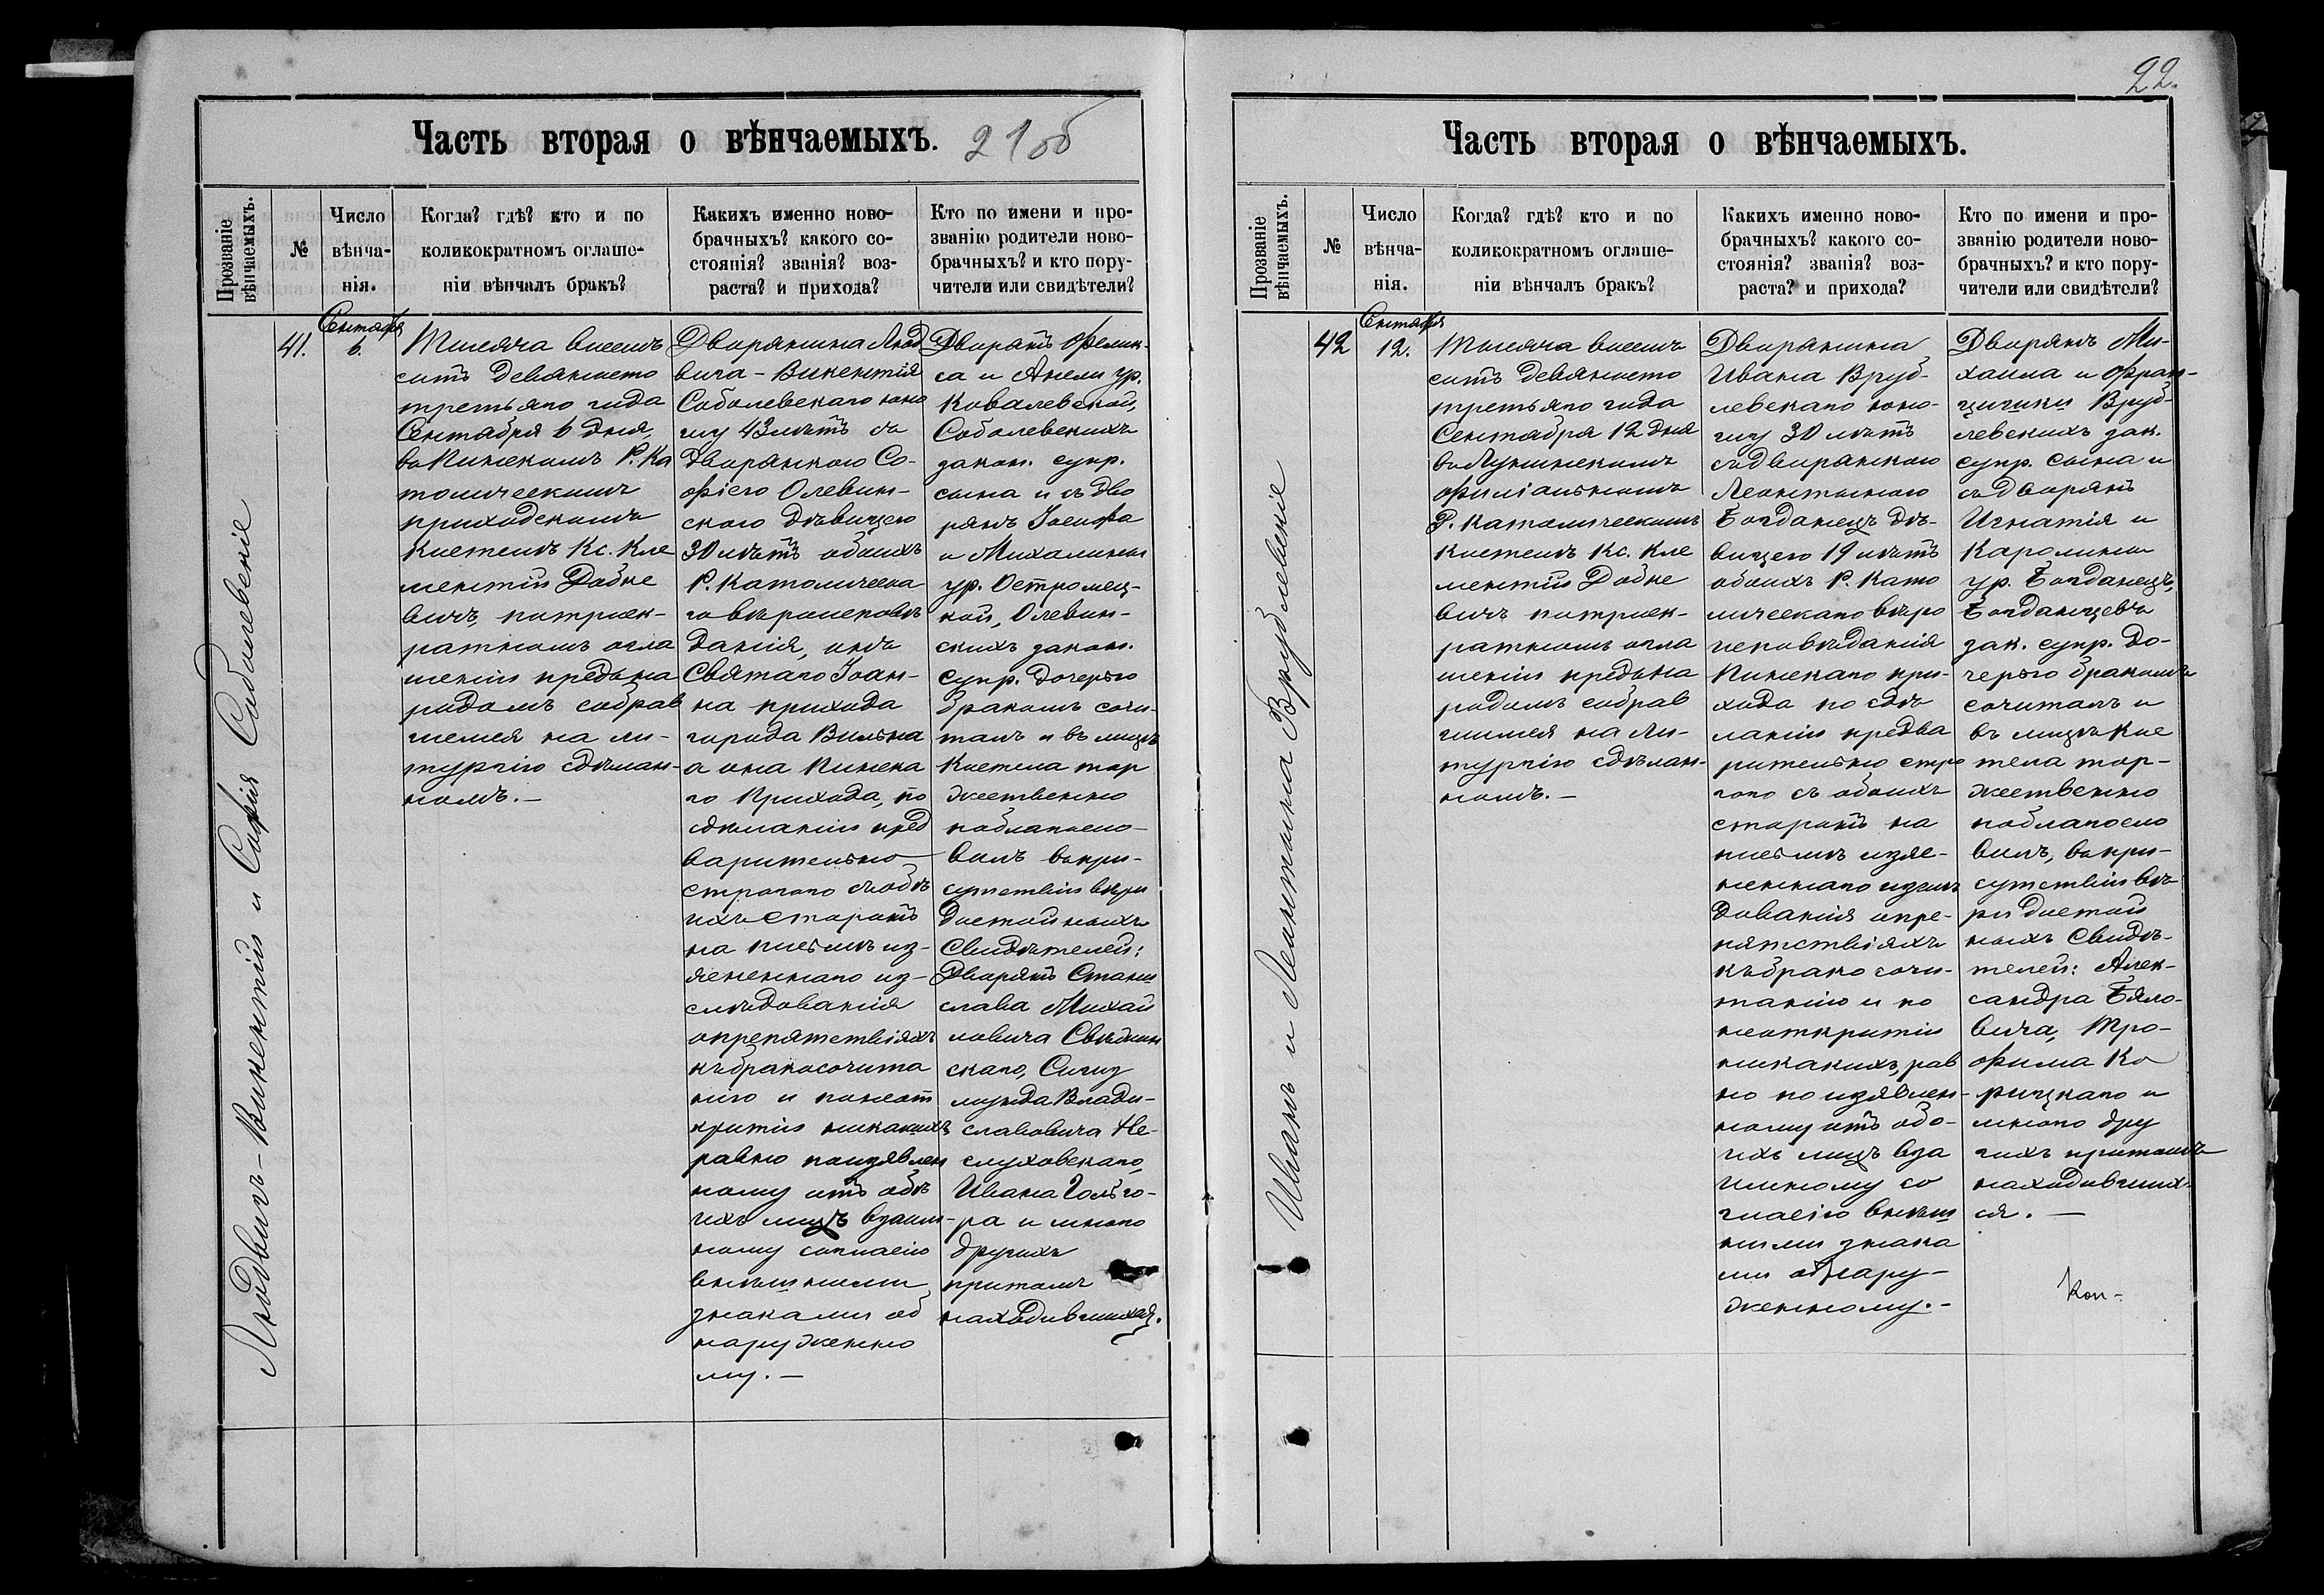 Часть вторая о вѣнчаемыхъ.
21об
Прозваніе
вѣнчаемыхъ.
№
Число
вѣнча-
нія.
Когда? гдѣ? кто и по
коликократномъ оглаше-
ніи вѣнчалъ бракъ?
Какихъ именно ново-
брачныхъ? какого со-
стоянія? званія? воз-
раста? и прихода?
Кто по имени и про-
званію родители ново-
брачныхъ? и кто пору-
чители или свидѣтели?
Людвигъ-Викентій и Софія Соболевскіе
41.
Сентября
6.
Тысяча восемь
сотъ девяносто
третьяго года
Сентября 6 дня,
въ Пинскомъ Р. Ка
толическомъ
приходскомъ
костелѣ Кс. Кле
ментій Добке
вичъ, потроек-
ратномъ огла
шеніи предъ на
родомъ собрав
шемся на ли-
тургію сдѣлан-
номъ.—
Дворянина Люд
вига-Викентія
Соболевскаго юно
шу 43 лѣтъ съ
дворянкою Со-
фіею Олевин-
скою дѣвицею
30 лѣтъ обоихъ
Р. Католическа
го вѣроисповѣ
данія, онъ
Святаго Іоан-
на прихода
города Вильна
а она Пинска
го Прихода, по
сдѣланіи пред
варительно
строгаго съобѣ
ихъ сторонъ
на письмѣ из-
ясненнаго из-
слѣдованія
опрепятствіяхъ
къ бракосочета
нію и понеот
крытіи никакихъ
равно поизявлен
ному отъ обѣ
ихъ лицъ взаим-
ному согласію
внѣшними
знаками об
наруженно
му.—
Дворянъ Фелик-
са и Анели ур.
Ковалевской,
Соболевскихъ
закон. супр.
сына и съ дво
рянъ Іосифа
и Михалины
ур. Остромец-
кой, Олевин-
скихъ закон.
супр. дочерью
бракомъ соче-
талъ и въ лицѣ
Костела тор
жественно
поблагосло-
вилъ въ при-
сутствіи вѣро
достойныхъ
Свидѣтелей:
Дворянъ Стани
слава Михай
ловича Свѣжин
скаго, Сигиз
мунда Влади-
славовича Не-
слуховскаго,
Ивана Гольго-
ра и много
другихъ
притомъ
находившихся.
22.
Часть вторая о вѣнчаемыхъ.
Прозваніе
вѣнчаемыхъ.
№
Число
вѣнча-
нія.
Когда? гдѣ? кто и по
коликократномъ оглаше-
ніи вѣнчалъ бракъ?
Какихъ именно ново-
брачныхъ? какого со-
стоянія? званія? воз-
раста? и прихода?
Кто по имени и про-
званію родители ново-
брачныхъ? и кто пору-
чители или свидѣтели?
Иванъ и Леонтына Врублевскіе
42
Сентября
12.
Тысяча восемь
сотъ девяносто
третьяго года
Сентября 12 дня
въ Лунинскомъ
филіальномъ
Р. Католическомъ
костелѣ Кс. Кле
ментій Добке
вичъ потроек-
ратномъ огла
шеніи предъ на
родомъ собрав
шимся на Ли-
тургію сдѣлан-
номъ.—
Дворянина
Ивана Вруб-
левскаго юно-
шу 30 лѣтъ
съ дворянкою
Леонтыною
Богданецъ дѣ-
вицею 19 лѣтъ
обоихъ Р. Като
лическаго вѣро
исповѣданія
Пинскаго при-
хода по сдѣ
ланіи предва
рительно стро
гаго съ обоихъ
сторонъ на
письмѣ изяс-
неннаго изслѣ
дованія опре-
пятствіяхъ
къ бракосоче-
танію и по
неоткрытіи
никакихъ, рав
но по изявлен-
ному отъ обо-
ихъ лицъ вза
имному со
гласію внѣш
ними знака
ми обнару-
женному.-
Дворянъ Ми-
хаила и Фран-
цишки Вруб-
левскихъ зак.
супр. сына и
съ дворянъ
Игнатія и
Каролины
ур. Богданецъ,
Богданцевъ
зак. супр. до-
черью бракомъ
сочеталъ и
въ лицѣ Кос
тела тор-
жественно
поблагосло
вилъ, въ при-
сутствіи вѣ-
ро достой
ныхъ Свидѣ-
телей: Алек-
сандра Бяло-
вича, Тро-
фима Ко
рицкаго и
много дру
гихъ притомъ
находивших-
ся.—
Коп-